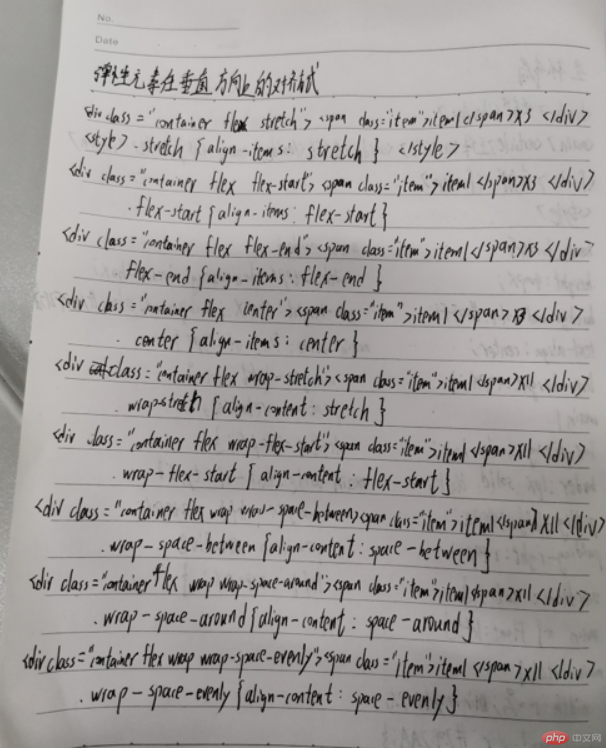 No.
Date
弹性元素在垂直方向上的对齐方式
<div class="container flex stretch"><span class="item">item1</span>x3 </div>
<style> .stretch {align-items: stretch } </style>
<div class="container flex flex-start"><span class="item">item1</span>x3 </div>
.flex-start {align-items: flex-start}
<div class="container flex flex-end"><span class="item">item1</span>x3 </div>
flex-end {align-items: flex-end }
<div class="container flex center"><span class="item">item1</span>x3 </div>
. center {align-items: center }
<div class="container flex wrap-stretch"><span class="item">item1</span>x11 </div>
.wrap-stretch {align-content: stretch }
<div class="container flex wrap-flex-start"><span class="item">item1</span>x11 </div>
.wrap-flex-start { align-content : flex-start }
<div class="container flex wrap wrap-space-between><span class="item">item1</span>x11 </div>
.wrap-space-between {align-content: space-between }
<div class="container flex wrap wrap-space-around"><span class="item">item1<span>x11 </div>
.wrap-space-around {align-content: space-around }
<div class="container flex wrap wrap-space-evenly"><span class="item">item1</span>x11 </div>
.wrap-space-evenly {align-content: space-evenly }
php 中文网